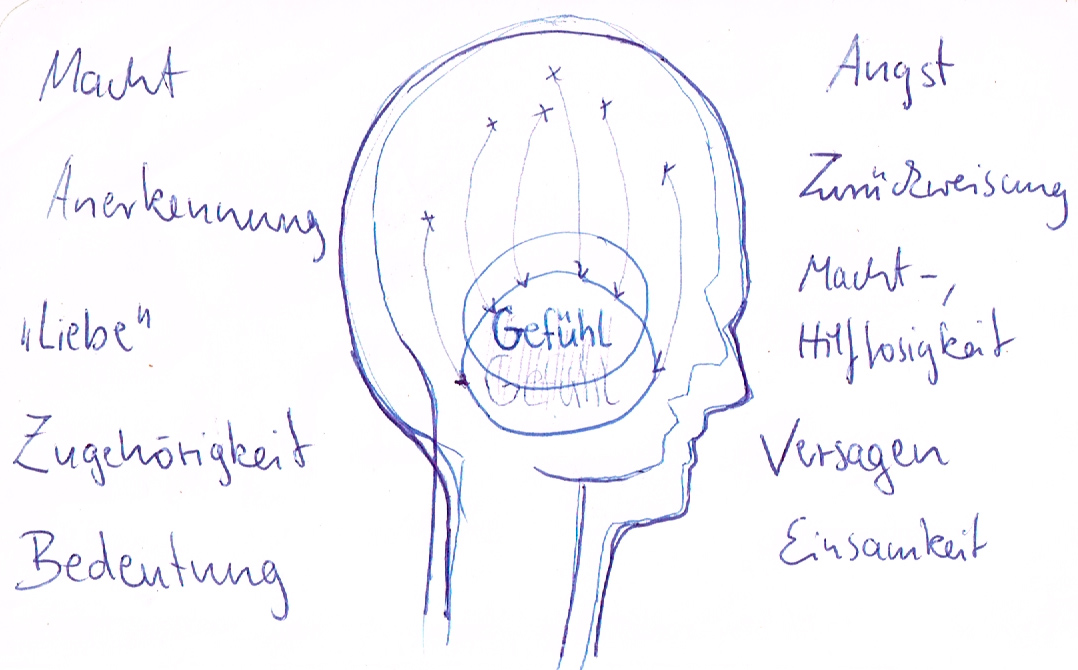 Macht
Anerkennung
"Liebe"
Zugehörigkeit
Bedeutung
Gefühl
Gefühl
Angst
Zurückweisung
Macht-,
Hilflosigkeit
Versagen
Einsamkeit